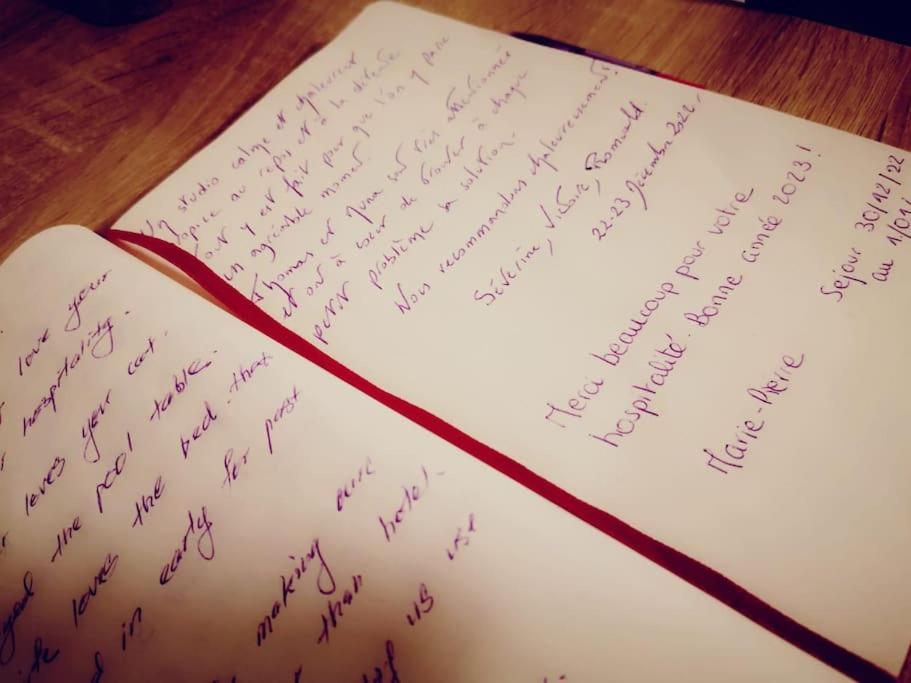 love your
hospitality.
loves your cat.
the pool table.
loves the bed. that
in early for past
making our
than hotel.
us use
Un studio calme et chaleureux
propice au repos et à la détente
Tout y est fait pour que l'on y passe
un agréable moment.
Thomas et sont très attentionnés
et ont à coeur de trouver à chaque
petit problème sa solution.
Nous recommandons chaleureusement!
Séverine, Victoire, Romuald.
22-23 Décembre 2022.
Merci beaucoup pour votre
hospitalité. Bonne année 2023!
Marie-Pierre
Séjour 30/12/22
au 1/01/